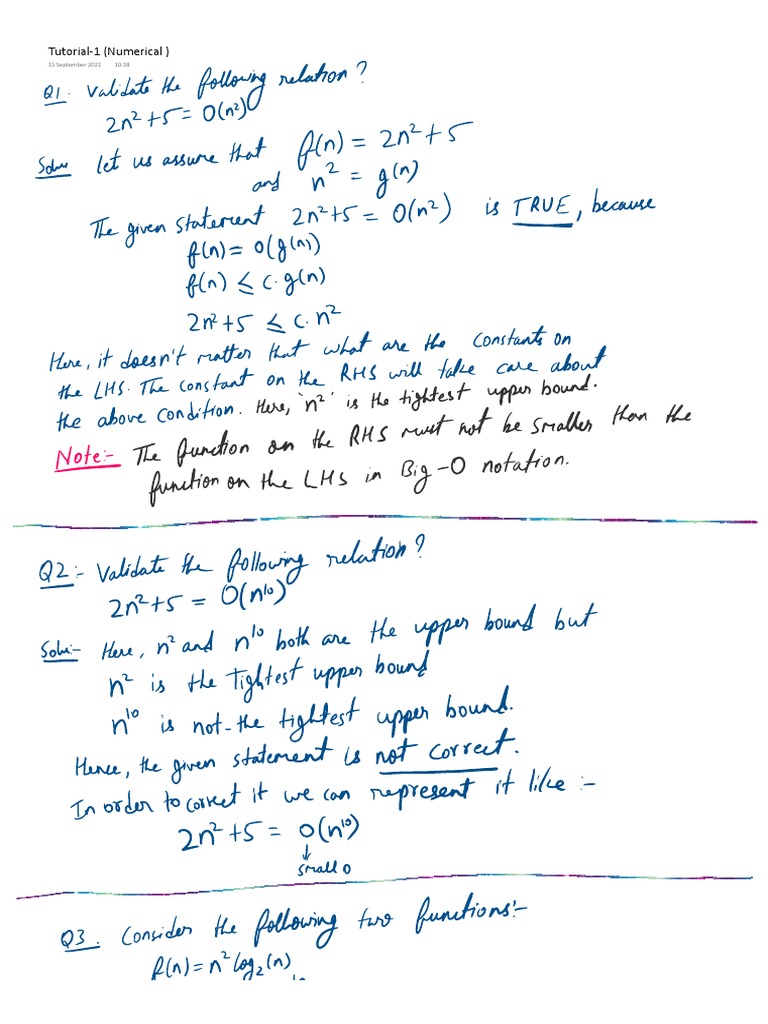 Tutorial-1 (Numerical )
15 September 2021 10:38
Q1. Validate the following relation?
2n²+5 = O(n²)
Soln:- let us assume that f(n) = 2n²+5
and n² = g(n)
The given statement 2n²+5 = O(n²) is TRUE, because
f(n) = O(g(n))
f(n) ≤ c.g(n)
2n²+5 ≤ c.n²
Here, it doesn't matter that what are the constants on
the LHS. The constant on the RHS will take care about
the above condition. Here, 'n²' is the tightest upper bound.
Note:- The function on the RHS must not be smaller than the
function on the LHS in Big-O notation.
Q2:- Validate the following relation?
2n²+5 = O(n¹⁰)
Soln:- Here, n² and n¹⁰ both are the upper bound but
n² is the Tightest upper bound
n¹⁰ is not-the tightest upper bound.
Hence, the given statement is not correct.
In order to correct it we can represent it like :-
2n²+5 = o(n¹⁰)
↓
small o
Q3. Consider the following two functions:-
f(n) = n² log₂(n)